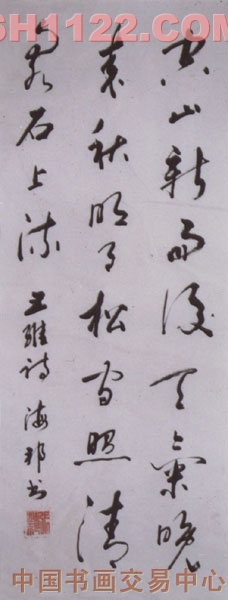 SH1122.COM
空山新雨後天氣晚
来秋明月松间照清
泉石上流 王維詩 海邦书
中国书画交易中心